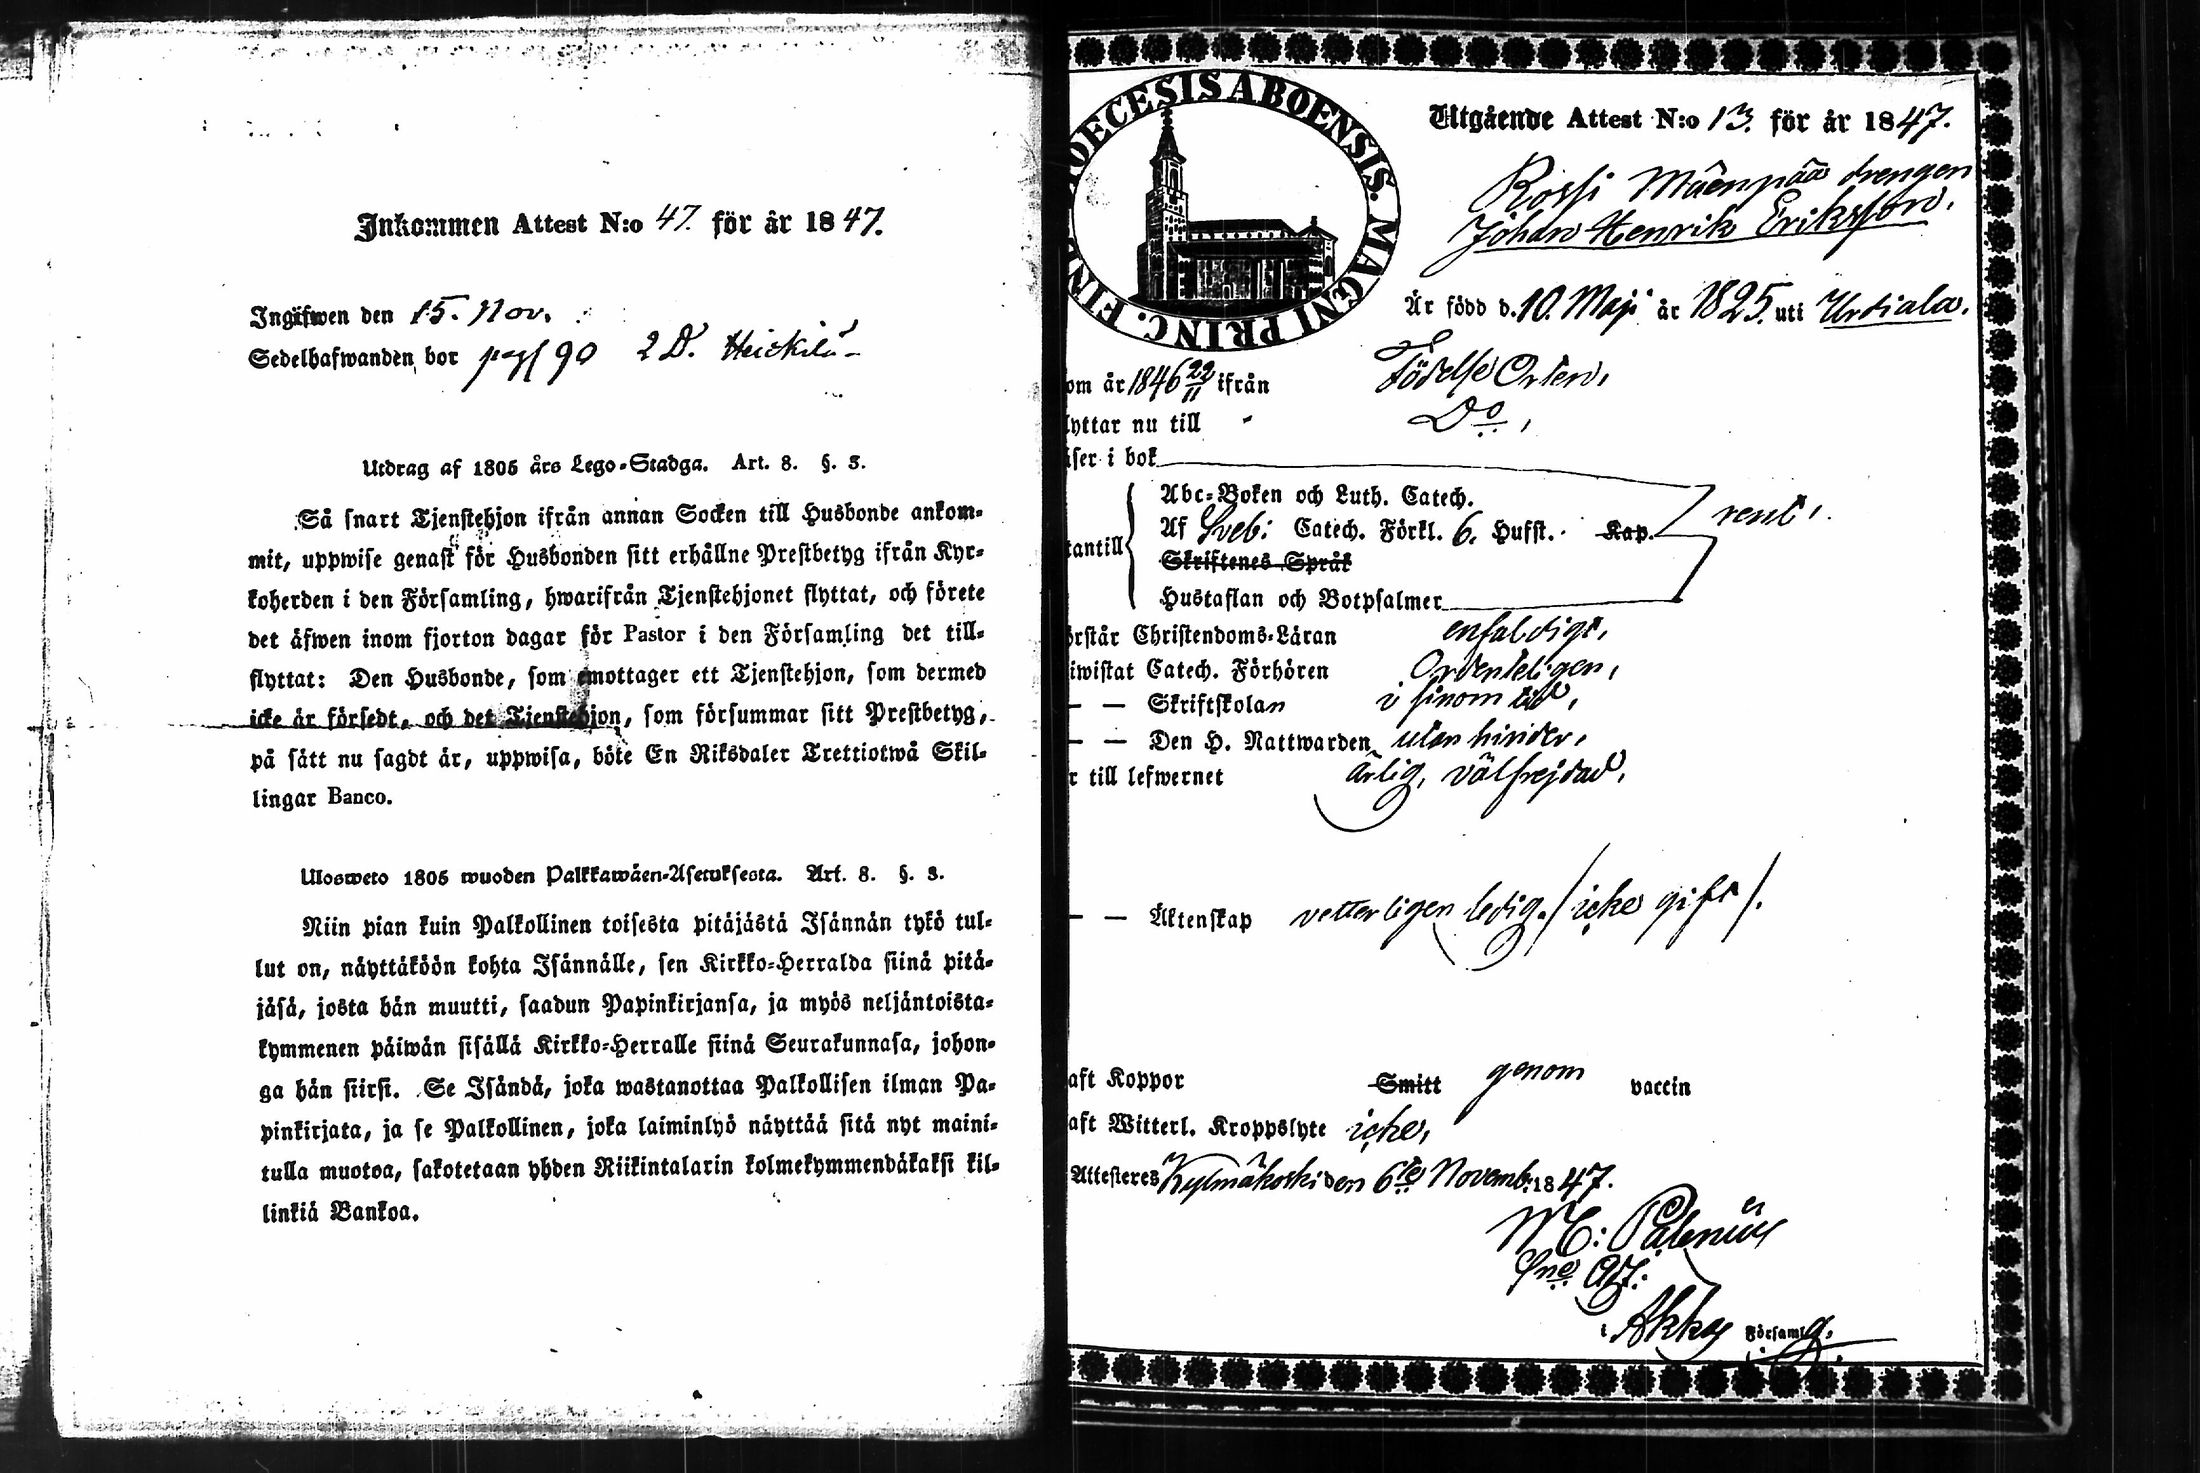 Inkommen Attest N:o 47. för år 1847.
Ingifwen den 15. Nov.
Sedelhafwanden bor pag 90 2 D. Heickilä
Utdrag af 1805 års Lego-Stadga. Art. 8. §. 3.
Så snart Tjenstehjon ifrån annan Socken till Husbonde ankom-
mit, uppwise genast för Husbonden sitt erhållne Prestbetyg ifrån Kyr-
koherden i den Församling, hwarifrån Tjenstehjonet flyttat, och förete
det äfwen inom fjorton dagar för Pastor i den Församling det till-
flyttat: Den Husbonde, som emottager ett Tjenstehjon, som dermed
icke är försedt, och det Tjenstehjon, som försummar sitt Prestbetyg,
på sätt nu sagdt är, uppwisa, böte En Riksdaler Trettiotwå Skil-
lingar Banco.
Ulosweto 1805 wuoden Palkkawäen-Asetuksesta. Art. 8. §. 3.
Niin pian kuin Palkollinen toisesta pitäjästä Isännän tykö tul-
lut on, näyttäköön kohta Isännälle, sen Kirkko-Herralda siinä pitä-
jäsä, josta hän muutti, saadun Papinkirjansa, ja myös neljäntoista-
kymmenen päiwän sisällä Kirkko-Herralle siinä Seurakunnasa, johon-
ga hän siirsi. Se Isändä, joka wastanottaa Palkollisen ilman Pa-
pinkirjata, ja se Palkollinen, joka laiminlyö näyttää sitä nyt maini-
tulla muotoa, sakotetaan yhden Riikintalarin kolmekymmendäkaksi kil-
linkiä Bankoa.
OECESIS ABOENSIS. MAGNI PRINC. FIN
Utgående Attest N:o 13. för år 1847.
Rossi Mäenpää drengen
Johan Henrik Eriksson.
Är född d. 10. Maji år 1825. uti Urdiala.
om år 1846 22/11 ifrån Födelse Orten,
lyttar nu till Do,
äser i bok
Abc-Boken och Luth. Catech.
Af Sveb: Catech. Förkl. 6. Hufst. Kap. rent,
tantill
Skriftenes Språk
Hustaflan och Botpsalmer
örstår Christendoms-Läran enfaldigt,
iwistat Catech. Förhören Ordenteligen,
— — Skriftskolan i sinom tid,
— — Den H. Nattwarden utan hinder,
r till lefwernet ärlig, välfrejdad,
— — Äktenskap vetterligen ledig. /icke gift/.
aft Koppor Smitt genom vaccin
aft Witterl. Kroppslyte icke,
Attesteres Kylmäkoski den 6te Novemb. 1847.
M: Palenius
i Akka Församlg.